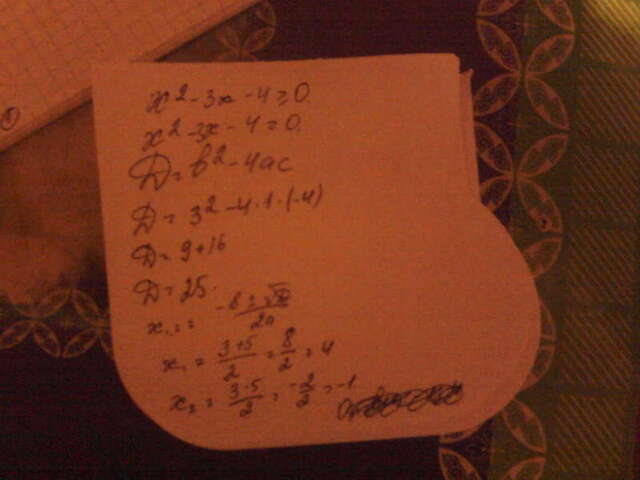 x² - 3x - 4 ≥ 0
x² - 3x - 4 = 0.
D = b² - 4ac
D = 3² - 4 · 1 · (-4)
D = 9 + 16
D = 25.
x₁,₂ = (-b ± √D)/2a
x₁ = (3+5)/2 = 8/2 = 4
x₂ = (3-5)/2 = -2/2 = -1